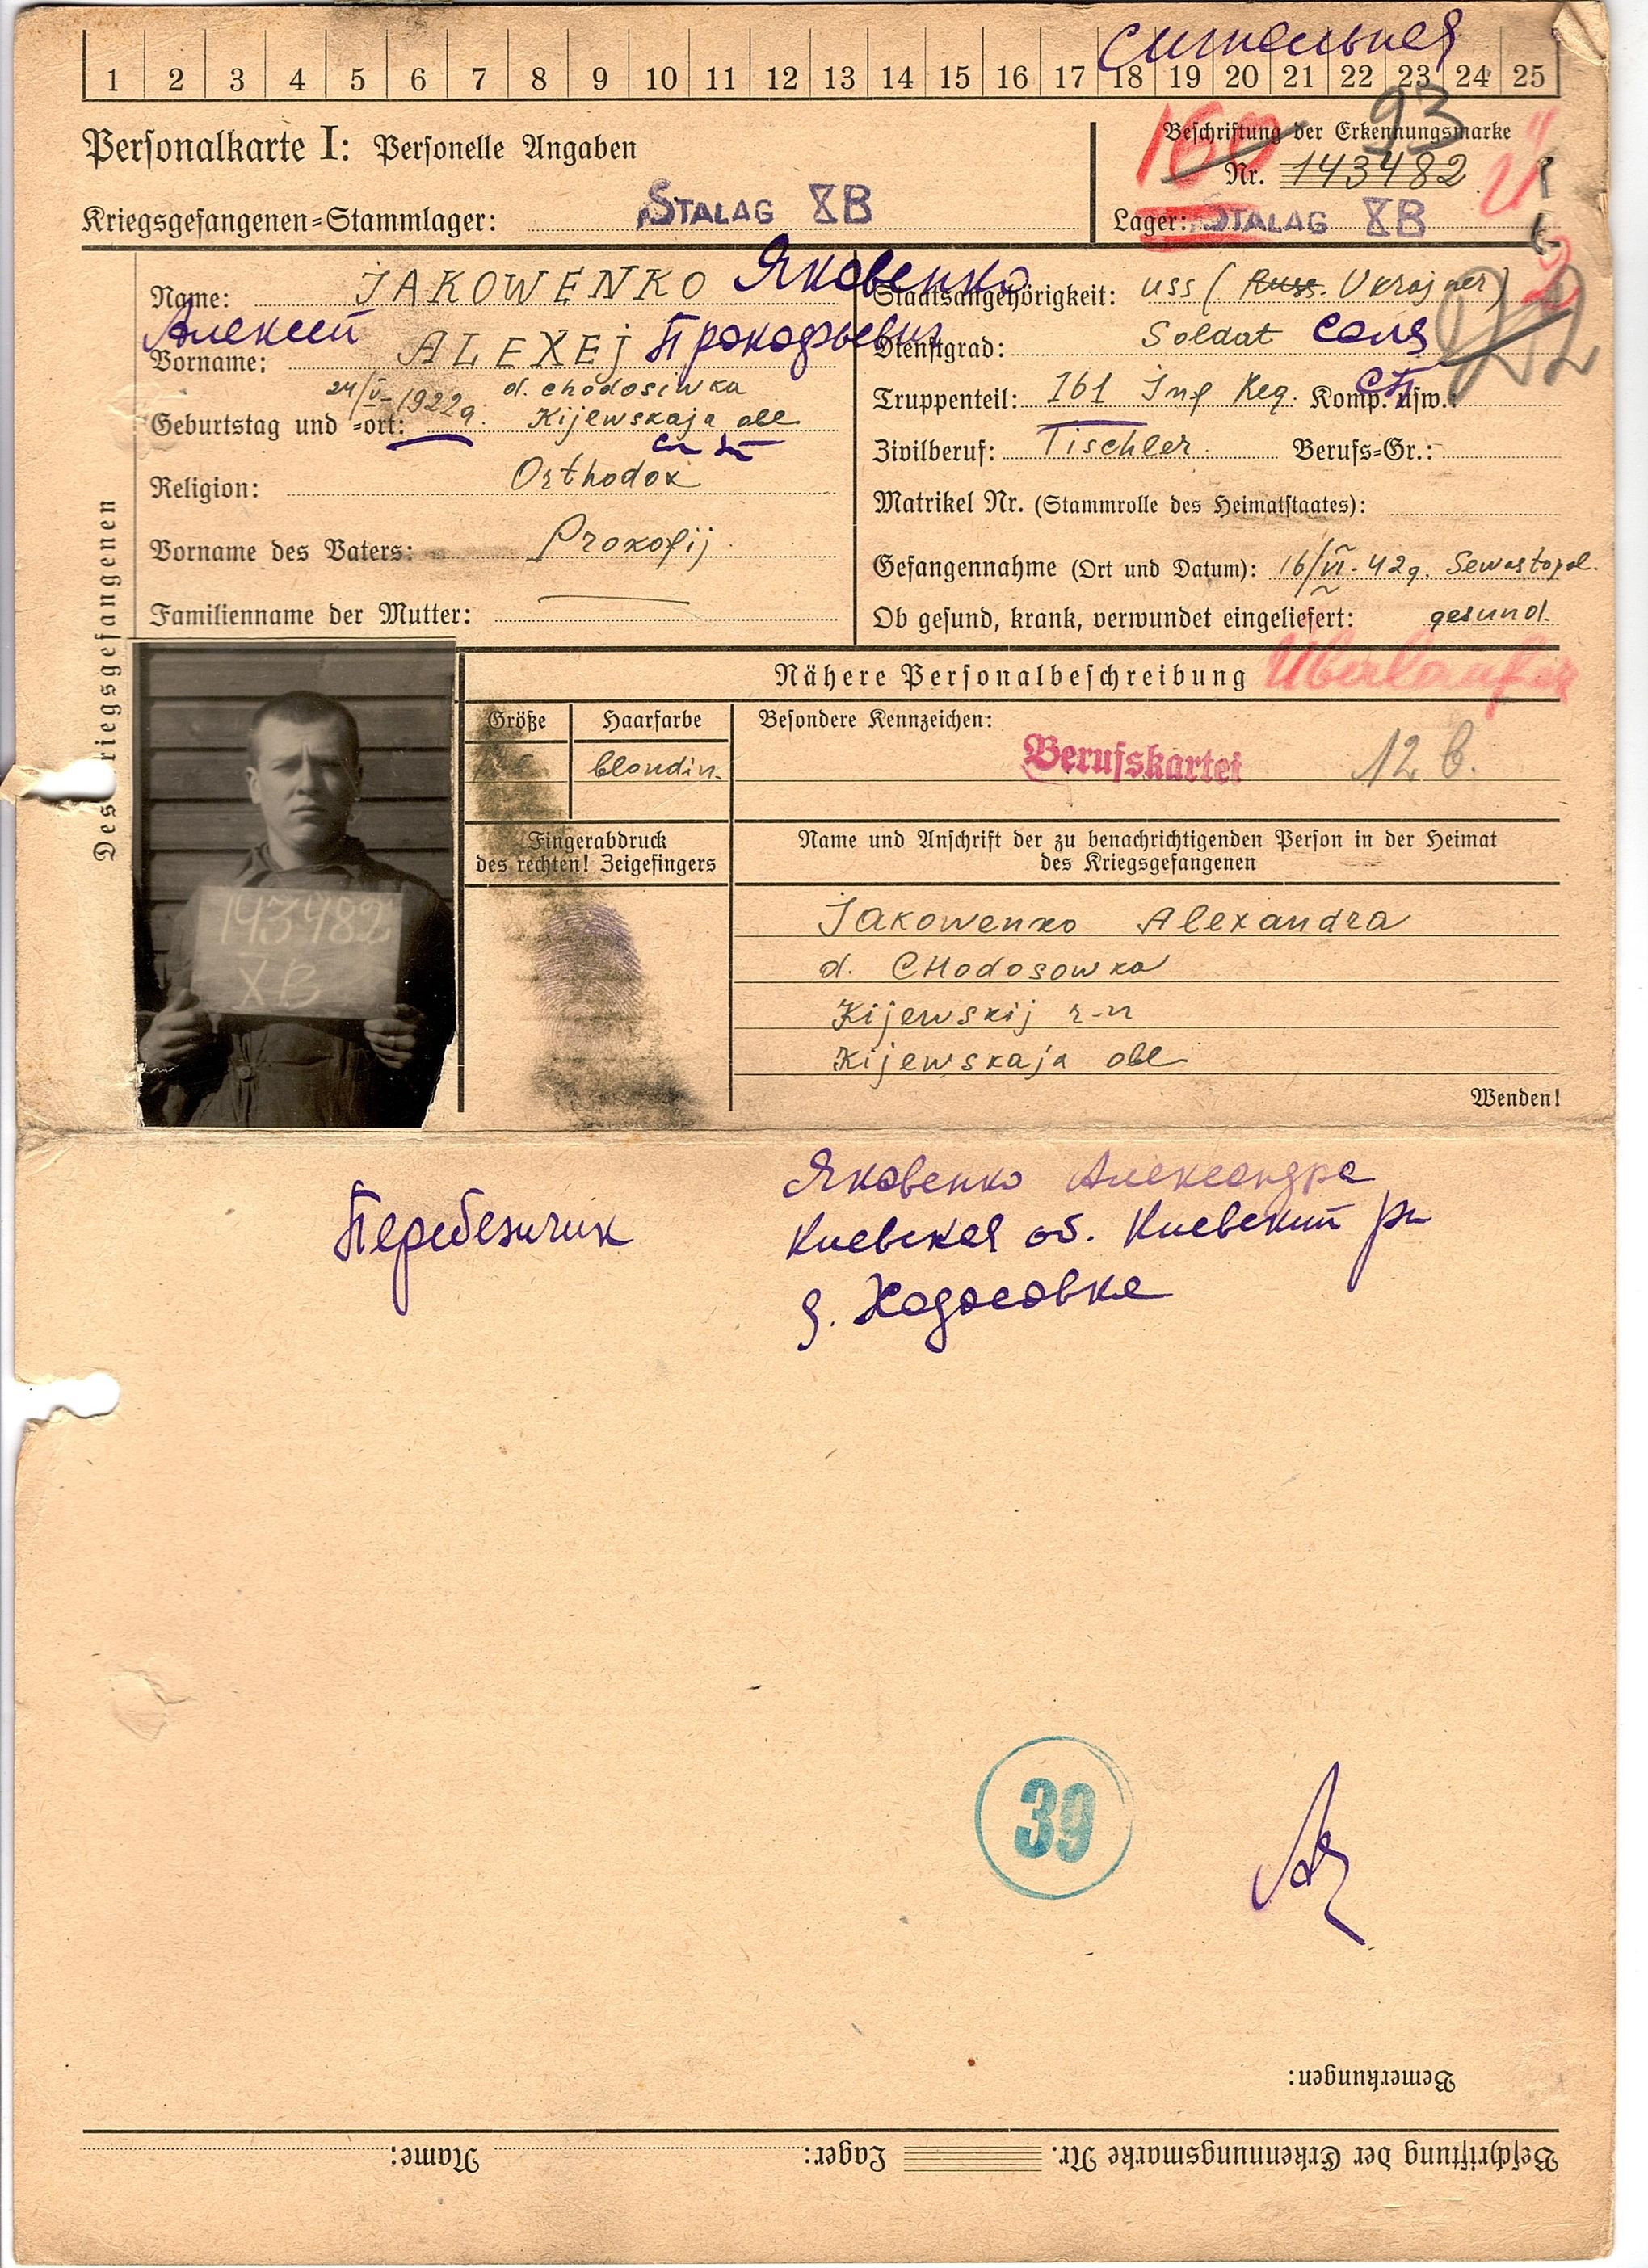 Сигнальная
1 2 3 4 5 6 7 8 9 10 11 12 13 14 15 16 17 18 19 20 21 22 23 24 25
Personalkarte I: Personelle Angaben
Kriegsgefangenen=Stammlager: STALAG XB
160
93
Beschriftung der Erkennungsmarke
Nr. 143482
Lager: STALAG XB
Des Kriegsgefangenen
Name: JAKOWENKO Яковенко
Алексей
Vorname: ALEXEJ Прокофьевич
24/V-1922g. d. chodosiwka
Geburtstag und =ort: Kijewskaja obl
Religion: Orthodox
Vorname des Vaters: Prokofij
Familienname der Mutter: —
Staatsangehörigkeit: uss (Russ. Ukrajner)
Dienstgrad: Soldat солд
Truppenteil: 161 Inf Reg. Komp. usw.: сп
Zivilberuf: Tischler Berufs=Gr.:
Matrikel Nr. (Stammrolle des Heimatstaates):
Gefangennahme (Ort und Datum): 16/VI-42g. Sewastopol.
Ob gesund, krank, verwundet eingeliefert: gesund.
143482
XB
Nähere Personalbeschreibung Überlaufer
Größe Haarfarbe Besondere Kennzeichen:
blondin. Berufskartei 12 b.
Fingerabdruck
des rechten! Zeigefingers
Name und Anschrift der zu benachrichtigenden Person in der Heimat
des Kriegsgefangenen
Jakowenko Alexandra
d. CHodosowka
Kijewskij r-n
Kijewskaja obl
Wenden!
Перебежчик
Яковенко Александра
Киевская об. Киевский рн
д. Ходосовка
39
Bemerkungen:
Beschriftung der Erkennungsmarke Nr. Lager: Name: